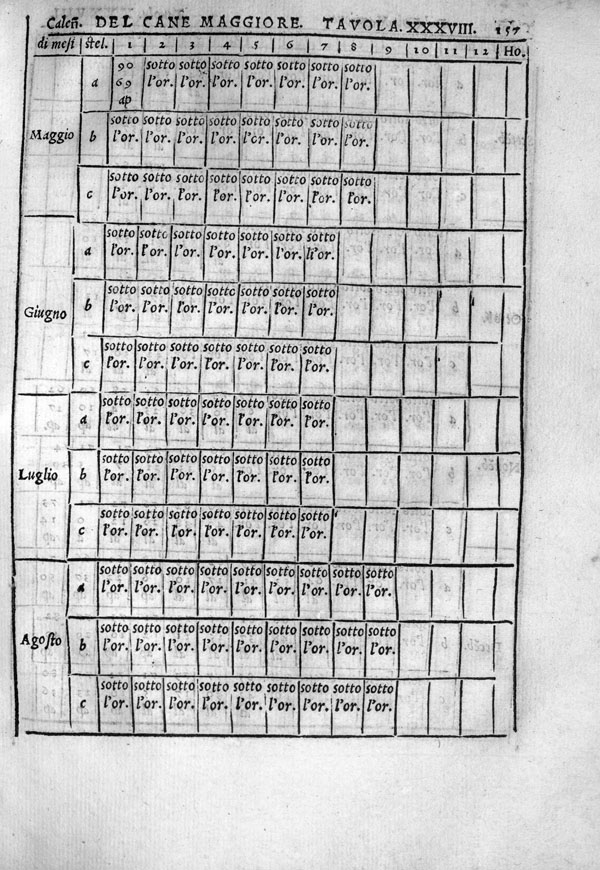 Caleñ. DEL CANE MAGGIORE. TAVOLA.XXXVIII. 157
di mesi stel. 1 2 3 4 5 6 7 8 9 10 11 12 Ho.
90 sotto sotto sotto sotto sotto sotto sotto
a 69 l'or. l'or. l'or. l'or. l'or. l'or. l'or.
ap
sotto sotto sotto sotto sotto sotto sotto sotto
Maggio b l'or. l'or. l'or. l'or. l'or. l'or. l'or. l'or.
sotto sotto sotto sotto sotto sotto sotto sotto
c l'or. l'or. l'or. l'or. l'or. l'or. l'or. l'or.
sotto sotto sotto sotto sotto sotto sotto
a l'or. l'or. l'or. l'or. l'or. l'or. l'or.
sotto sotto sotto sotto sotto sotto sotto
Giugno b l'or. l'or. l'or. l'or. l'or. l'or. l'or.
sotto sotto sotto sotto sotto sotto sotto
c l'or. l'or. l'or. l'or. l'or. l'or. l'or.
sotto sotto sotto sotto sotto sotto sotto
a l'or. l'or. l'or. l'or. l'or. l'or. l'or.
sotto sotto sotto sotto sotto sotto sotto
Luglio b l'or. l'or. l'or. l'or. l'or. l'or. l'or.
sotto sotto sotto sotto sotto sotto sotto
c l'or. l'or. l'or. l'or. l'or. l'or. l'or.
sotto sotto sotto sotto sotto sotto sotto sotto sotto
a l'or. l'or. l'or. l'or. l'or. l'or. l'or. l'or. l'or.
sotto sotto sotto sotto sotto sotto sotto sotto sotto
Agosto b l'or. l'or. l'or. l'or. l'or. l'or. l'or. l'or. l'or.
sotto sotto sotto sotto sotto sotto sotto sotto sotto
c l'or. l'or. l'or. l'or. l'or. l'or. l'or. l'or. l'or.